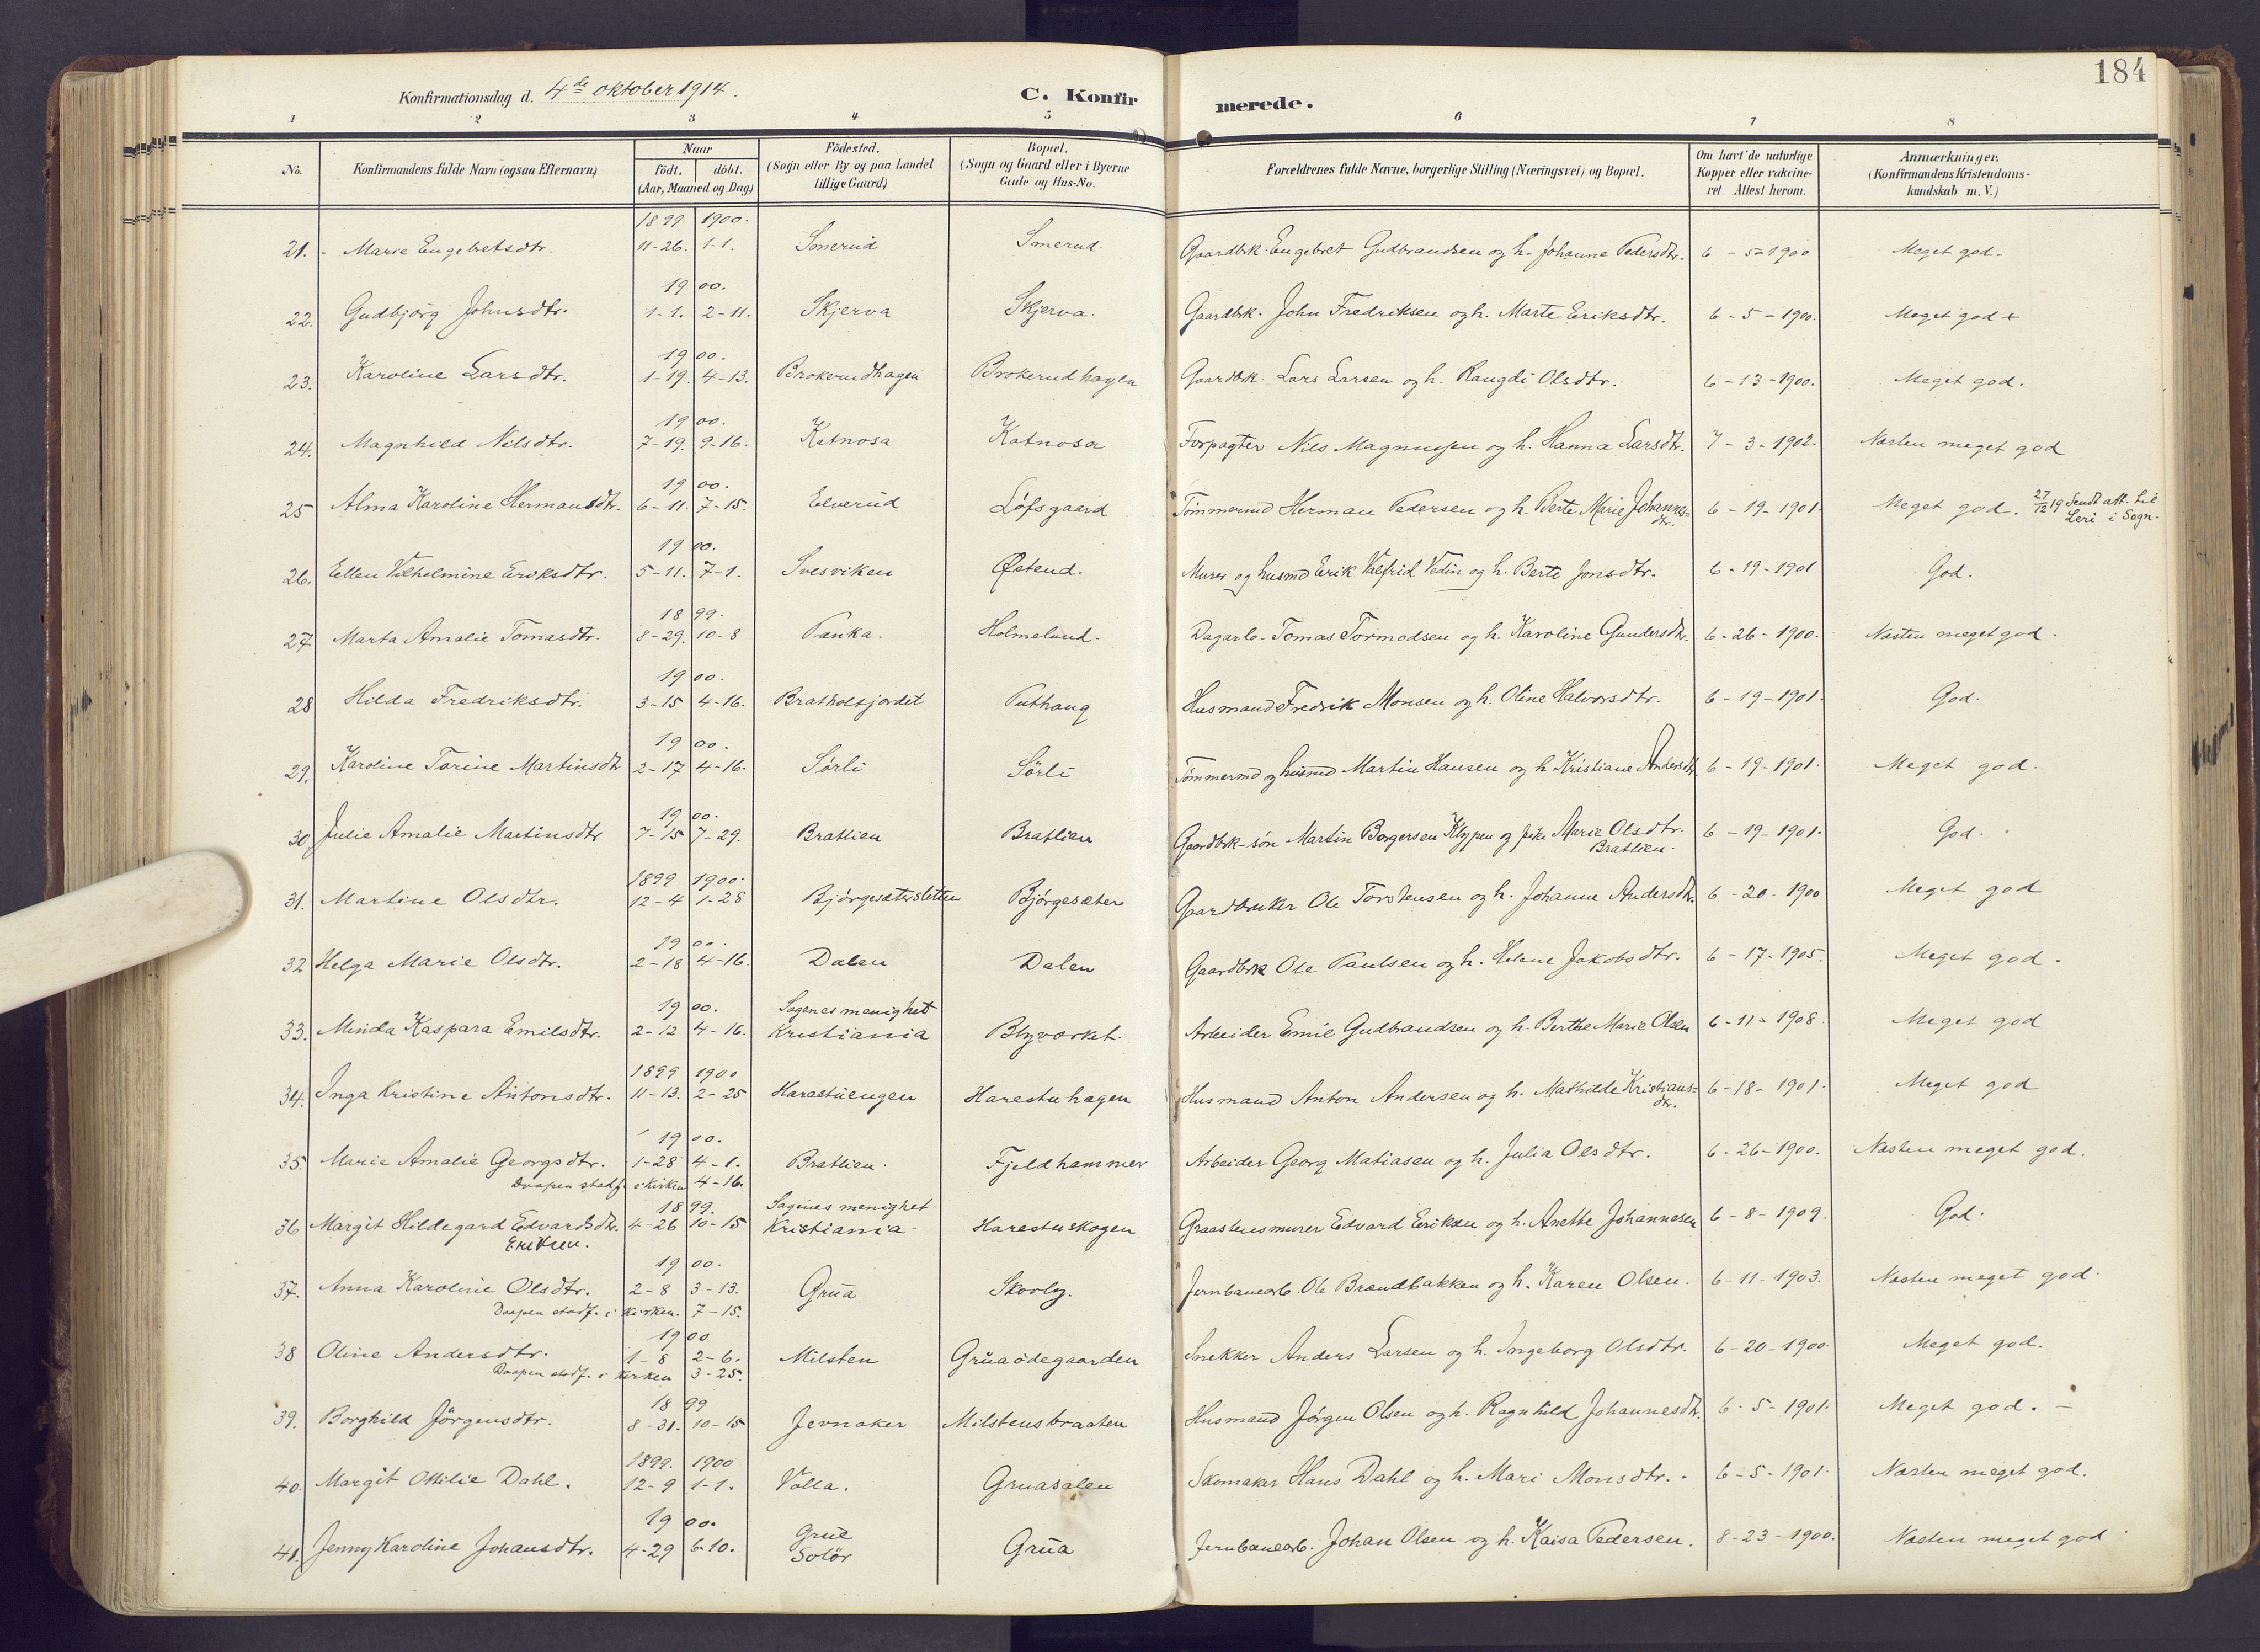 184
Konfirmationsdag d. 4de oktober 1914. C. Konfirmerede.
1 2 3 4 5 6 7 8
No. Konfirmandens fulde Navn (ogsaa Efternavn) Naar födt. döbt. (Aar, Maaned og Dag) Födested. (Sogn eller By og paa Landet tillige Gaard) Bopæl. (Sogn og Gaard eller i Byerne Gade og Hus-No. Forældrenes fulde Navne, borgerlige Stilling (Næringsvei) og Bopæl. Om havt de naturlige Kopper eller vakcineret Attest herom. Anmærkninger. (Konfirmandens Kristendomskundskab m. V.)
1899 1900.
21. Marie Engebretsdtr. 11-26. 1-1. Smerud Smerud. Gaardbrk. Engebret Gudbrandsen og h. Johanne Pedersdtr. 6-5-1900 Meget god.
1900.
22. Gudbjörg Johnsdtr. 1-1. 2-11. Skjerva Skjerva. Gaardbrk. John Fredriksen og h. Marte Eriksdtr. 6-5-1900. Meget god +
1900.
23. Karoline Larsdtr. 1-19. 4-13. Brokerudhagen Brokerudhagen Gaardbk. Lars Larsen og h. Raugdi Olsdtr. 6-13-1900. Meget god.
1900.
24. Magnhild Nilsdtr. 7-19. 9-16. Katnosa Katnosa Forpagter Nils Magnussen og h. Hanna Larsdtr. 7-3-1902. Næsten meget god
1900.
25 Alma Karoline Hermansdtr. 6-11. 7-15. Elverud Løfsgaard Tömmermd Herman Pedersen og h. Berte Marie Johannes= 6-19-1901. Meget god. 27/12 19 Sendt att. til
dtr. Leri i Sogn.
1900.
26. Ellen Vilhelmine Eriksdtr. 5-11. 7-1. Svesviken Østend. Murer og husmd Erik Valfrid Vedin og h. Berte Jonsdtr. 6-19-1901 God.
1899.
27 Marta Amalie Tomasdtr. 8-29. 10-8 Panka. Holmelund. Dagarb. Tomas Tormodsen og h. Karoline Gundersdtr. 6-26-1900. Næsten meget god.
1900.
28 Hilda Fredriksdtr. 3-15 4-16. Bratholtjordet Puthaug Husmand Fredrik Monsen og h. Oline Halvorsdtr. 6-19-1901. God.
1900.
29. Karoline Torine Martinsdtr 2-17 4-16. Sörli Sörli Tömmermd og husmd Martin Hansen og h. Kristiane Andersdtr 6-19-1901. Meget god.
1900.
30 Julie Amalie Martinsdtr 7-15 7-29. Bratlien Bratlien Gaardbrk-sön Martin Borgersen Klypen og pike Marie Olsdtr. 6-19-1901. God.
Bratlien.
1899 1900.
31. Martine Olsdtr. 12-4 1-28 Bjørgesætersletten Bjørgesæter Gaardbruker Ole Torstensen og h. Johanne Andersdtr. 6-20-1900 Meget god
1900.
32 Helga Marie Olsdtr. 2-18 4-16. Dalen Dalen Gaardbrk Ole Paulsen og h. Helene Jakobsdtr. 6-17-1905. Meget god.
1900. Sagenes menighet
33. Minda Kaspara Emilsdtr. 2-12 4-16. Kristiania Blyverket. Arbeider Emil Gudbrandsen og h. Berthe Marie Olsen 6-11-1908. Meget god
1899 1900
34. Inga Kristine Antonsdtr. 11-13. 2-25 Harestuengen Harestuhagen Husmand Anton Andersen og h. Mathilde Kristians= 6-18-1901. Meget god
dtr.
1900.
35. Marie Amalie Georgsdtr. 1-28 4-1. Bratlien. Fjeldhammer Arbeider Georg Matiasen og h. Julia Olsdtr. 6-26-1900. Næsten meget god.
Daapen stadf. i kirken 4-16.
1899. Sagenes menighet
36 Margit Hildegard Edvardsdtr. 4-26 10-15 Kristiania Harestuskogen Graastensmurer Edvard Eriksen og h. Anette Johannesen 6-8-1909. God.
Eriksen.
1900.
37. Anna Karoline Olsdtr. 2-8 3-13. Grua Skovly. Jernbanearb. Ole Brændbakken og h. Karen Olsen. 6-11-1903. Næsten meget god.
Daapen stadf. i kirken. 7-15.
1900
38 Oline Andersdtr. 1-8 2-6. Milsten Gruaødegaarden Snekker Anders Larsen og h. Ingeborg Olsdtr. 6-20-1900. Meget god.
Daapen stadf. i kirken 3-25.
1899
39. Borghild Jörgensdtr. 8-31. 10-15 Jevnaker Milstensbraaten Husmand Jörgen Olsen og h. Ragnhild Johannesdtr. 6-5-1901. Meget god. -
1899. 1900
40. Margit Ottilie Dahl. 12-9 1-1. Volla. Gruasalen Skomaker Hans Dahl og h. Mari Monsdtr. 6-5-1901. Næsten meget god.
1900. Grue
41. Jenny Karoline Johansdtr. 4-29 6-10. Solör Grua Jernbanearb. Johan Olsen og h. Kaisa Pedersen. 8-23-1900. Næsten meget god